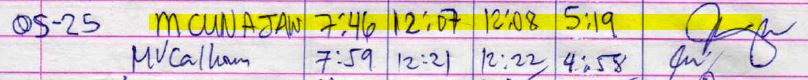 05-25 M CUNAJAN 7:46 12:07 12:08 5:19
MVCalhoun 7:59 12:21 12:22 4:58